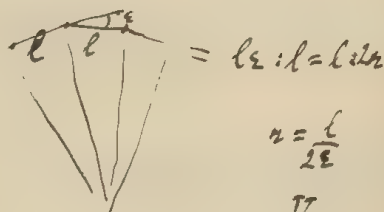 ε
l l = lε : l = l : 2r
r = l / 2ε